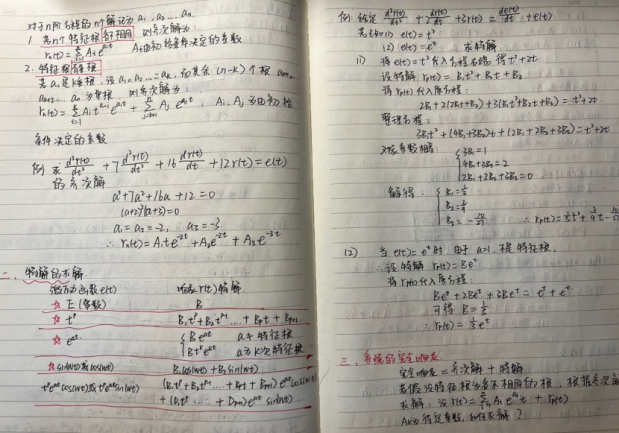 对于n阶方程的n个解记为 a₁, a₂ ... aₙ
1. 若n个特征根各不相同 则齐次解为:
rₕ(t) = Σ Aᵢ e^(aᵢt) Aᵢ由初始条件决定的系数
2. 特征根有重根
若a₁是k重根, 设 a₁=a₂...=aₖ, 而其余(n-k)个根 aₖ₊₁,
aₖ₊₂ ... aₙ 为单根 则齐次解为:
rₕ(t) = Σ Aᵢ t^(k-i) e^(a₁t) + Σ Aⱼ e^(aⱼt), Aᵢ, Aⱼ为由初始
条件决定的系数
例 求 d³r(t)/dt³ + 7 d²r(t)/dt² + 16 dr(t)/dt + 12r(t) = e(t)
的齐次解
a³+7a²+16a+12=0
(a+2)²(a+3)=0
a₁=a₂=-2, a₃=-3
∴ rₕ(t) = A₁te^(-2t) + A₂e^(-2t) + A₃e^(-3t)
二、特解的求解
激励函数e(t) 响应r(t)特解
☆ E (常数) B
☆ t^p B₁t^p+B₂t^(p-1) .... + Bₚt + Bₚ₊₁
☆ e^(at) { Be^(at) a不特征根
Bt^k e^(at) a为k次特征根
☆ sin(wt)或cos(wt) B₁cos(wt)+B₂sin(wt)
t^p e^(at)cos(wt)或t^p e^(at)sin(wt) (B₁t^p+B₂t^(p-1) ... + Bₚt + Bₚ₊₁) e^(at)cos(wt)
+ (D₁t^p ... + Dₚ₊₁) e^(at) sin(wt)
例: 给定 d²r(t)/dt² + 2 dr(t)/dt + 3r(t) = de(t)/dt + e(t)
若已知 (1) e(t)=t²
(2) e(t)=e^t 求特解
(1) 将e(t)=t²代入方程右端, 得 t²+2t
设特解 rₚ(t) = B₁t²+B₂t+B₃
将rₚ(t)代入原方程:
2B₁+2(2B₁t+B₂)+3(B₁t²+B₂t+B₃) = t²+2t
整理方程:
3B₁t²+(4B₁+3B₂)t+(2B₁+2B₂+3B₃)=t²+2t
对应系数相等: { 3B₁=1
4B₁+3B₂=2
2B₁+2B₂+3B₃=0
解得: { B₁=1/3
B₂=2/9
B₃=-10/27 ∴ rₚ(t)=1/3t²+2/9t-10/27
(2) 当e(t)=e^t时, 由于a=1, 不是特征根,
∴设特解 rₚ(t)=Be^t
将rₚ(t)代入原方程:
Be^t+2Be^t+3Be^t=e^t+e^t
可得 B=1/3
∴ rₚ(t)=1/3e^t
三、系统的完全响应
完全响应=齐次解+特解
若假设特征根为各不相同的根, 根据齐次解
求解, 设r(t)=Σ Aᵢe^(aᵢt)+rₚ(t)
Aᵢ为待定系数, 如何求解?